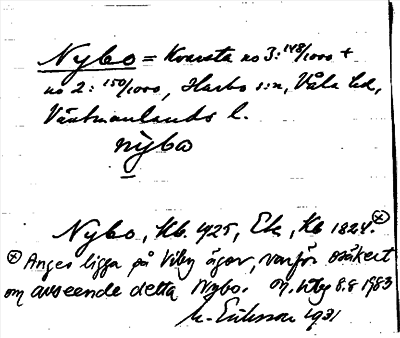 Nybo = Kvarsta no 3: 148/1000 +
no 2: 150/1000, Harbo s:n, Våla hd,
Västmanlands l.
nỳbo
Nybo, Kb. 425, Ek, Kb 1824. ⊗
⊗ Anges ligga på Viby ägor, varför osäkert
om avseende detta Nybo. 8.8 1983
M. Eriksson 1931